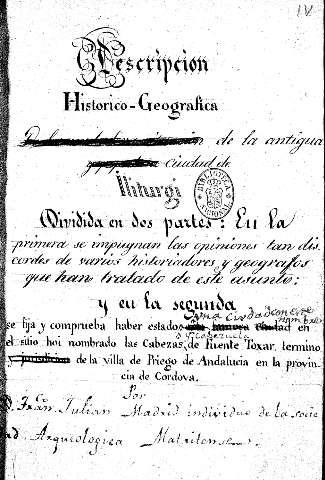 IV
Descripcion
Historico-Geografica
de la antigua
ciudad de
Iliturgi
BIBLIOTECA NACIONAL
Dividida en dos partes: En la
primera se impugnan las opiniones tan dis
cordes de varios historiadores y geografos
que han tratado de este asunto:
y en la segunda
una ciudad con este nombre
se fija y comprueba haber estado ciudad en
el sitio hoi nombrado las Cabezas, de Fuente Toxar, termino
de la villa de Priego de Andalucia en la provin
cia de Cordova.
Por
D. Fran.co Julian Madrid individuo de la socie
dad Arqueologica Matritense.